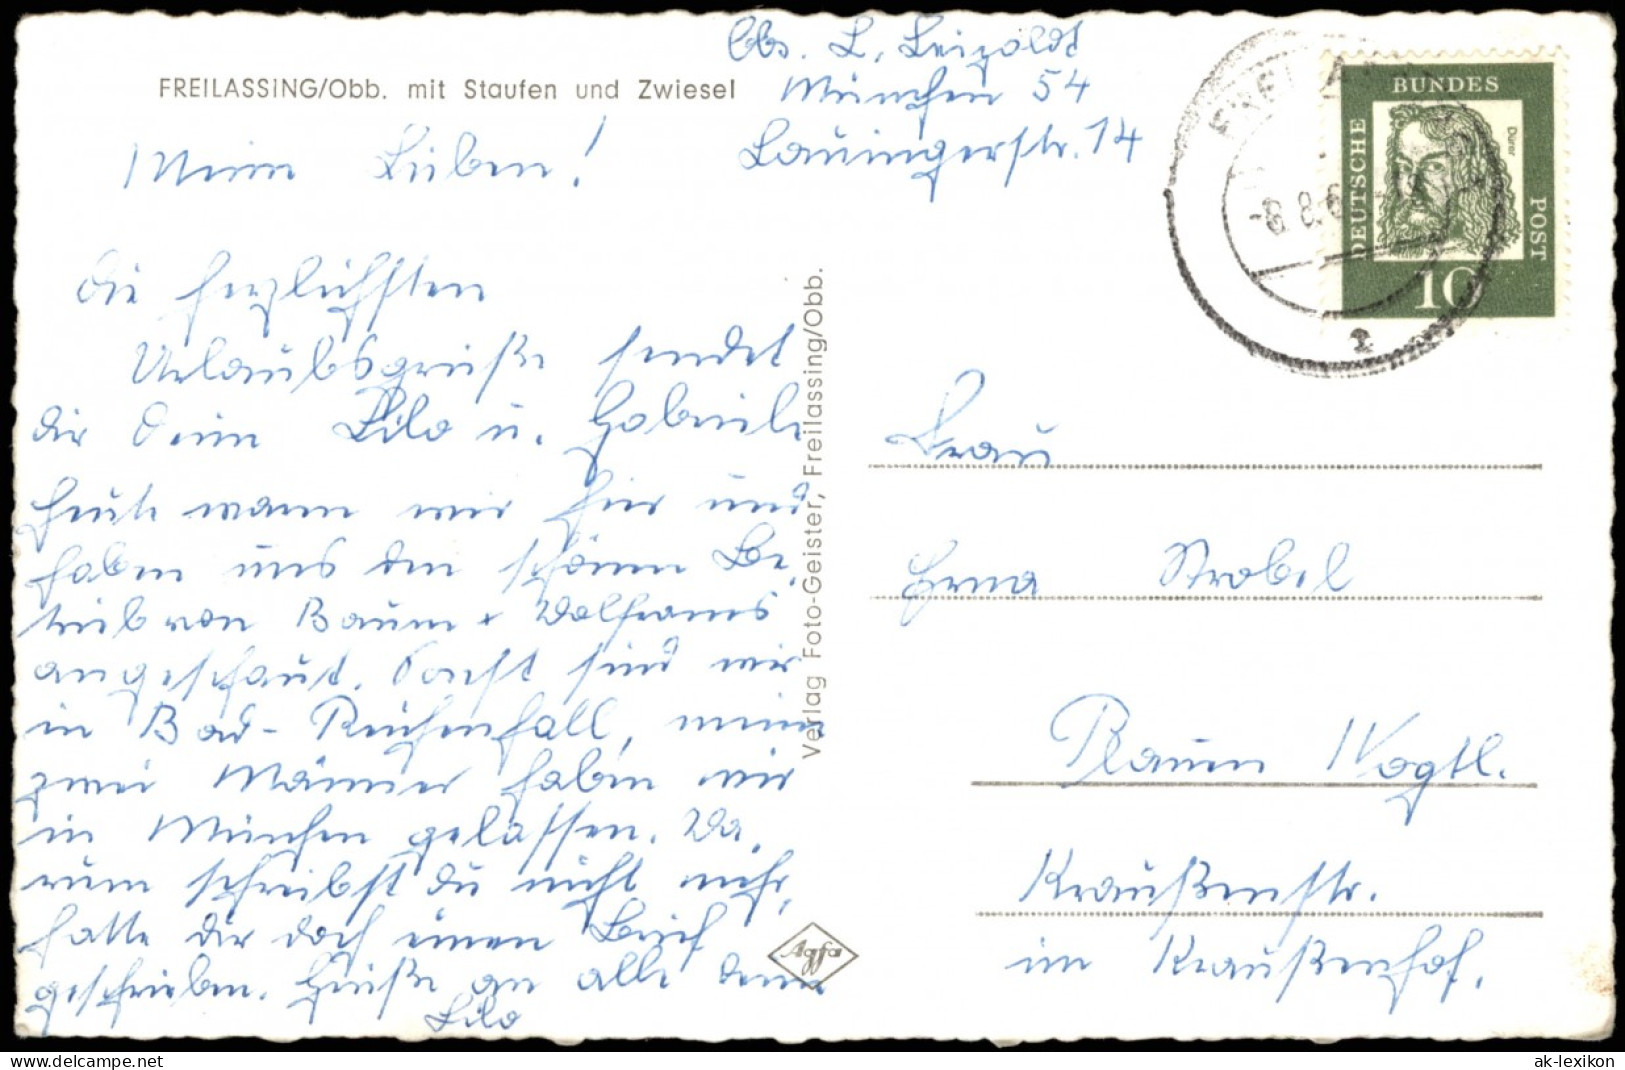 Abs. L. Leipoldt
FREILASSING/Obb. mit Staufen und Zwiesel
München 54
Lauingerstr. 14
Meine Lieben!
die herzlichsten
Urlaubsgrüße sendet
dir deine Lilo u. Gabriele
heute waren wir hier und
haben uns den schönen Be-
trieb von Baum + Wolframs
angeschaut. Sonst sind wir
in Bad-Reichenhall, meine
zwei Männer haben wir
in München gelassen. Wa-
rum schreibst du nicht mehr,
hatte dir doch einen Brief
geschrieben. Grüße an alle deine
Lilo
Verlag Foto-Geister, Freilassing/Obb.
Agfa
DEUTSCHE
BUNDES
POST
Dürer
10
-8.8.6
2
Frau
Erna Strobel
Plauen /Vogtl.
Kraußenstr.
im Kraußenhof.
Delcampe.net
ak-lexikon